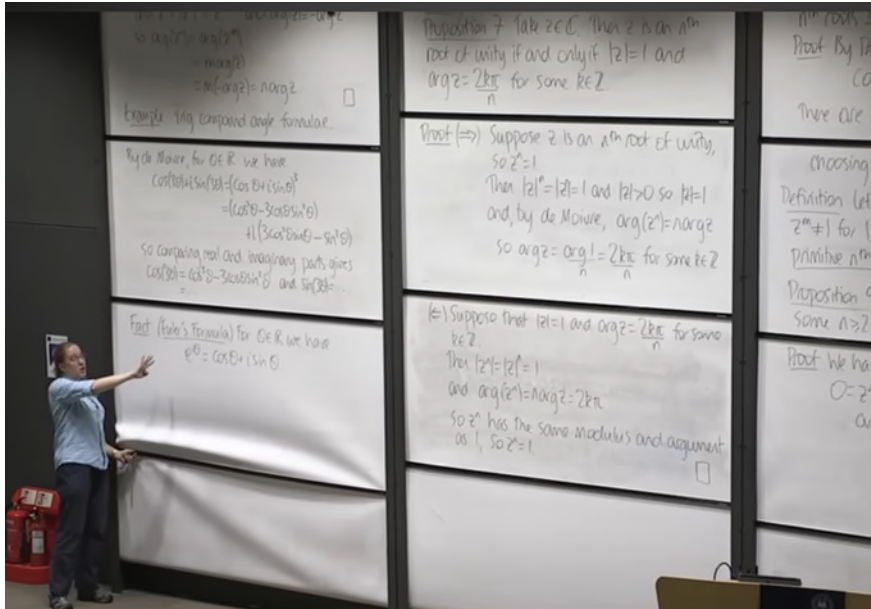 so arg(zⁿ) = arg(z^-m)
= m(-arg z) = n arg z
□
Example Trig compound angle formulae.
By de Moivre, for θ∈ℝ we have
cos(3θ)+isin(3θ)=(cosθ+isinθ)³
=(cos³θ-3cosθsin²θ)
+i(3cos²θsinθ-sin³θ)
so comparing real and imaginary parts gives
cos(3θ)=cos³θ-3cosθsin²θ and sin(3θ)=...
=...
Fact (Euler's Formula) For θ∈ℝ we have
e^iθ = cosθ+isinθ
Proposition 7 Take z∈ℂ. Then z is an nth
root of unity if and only if |z|=1 and
arg z = 2kπ/n for some k∈ℤ.
Proof (⇒) Suppose z is an nth root of unity,
so zⁿ=1
Then |z|ⁿ=|z|=1 and |z|>0 so |z|=1
and, by de Moivre, arg(zⁿ)=n arg z
so arg z = arg 1/n = 2kπ/n for some k∈ℤ
(⇐) Suppose that |z|=1 and arg z = 2kπ/n for some
k∈ℤ.
Then |zⁿ|=|z|ⁿ=1
and arg(zⁿ)=n arg z=2kπ
So zⁿ has the same modulus and argument
as 1, so zⁿ=1
□
nth roots
Proof By
There are
choosing
Definition Let
zᵐ≠1 for
primitive nth
Proposition
Some n≥2
Proof We ha
0=zⁿ